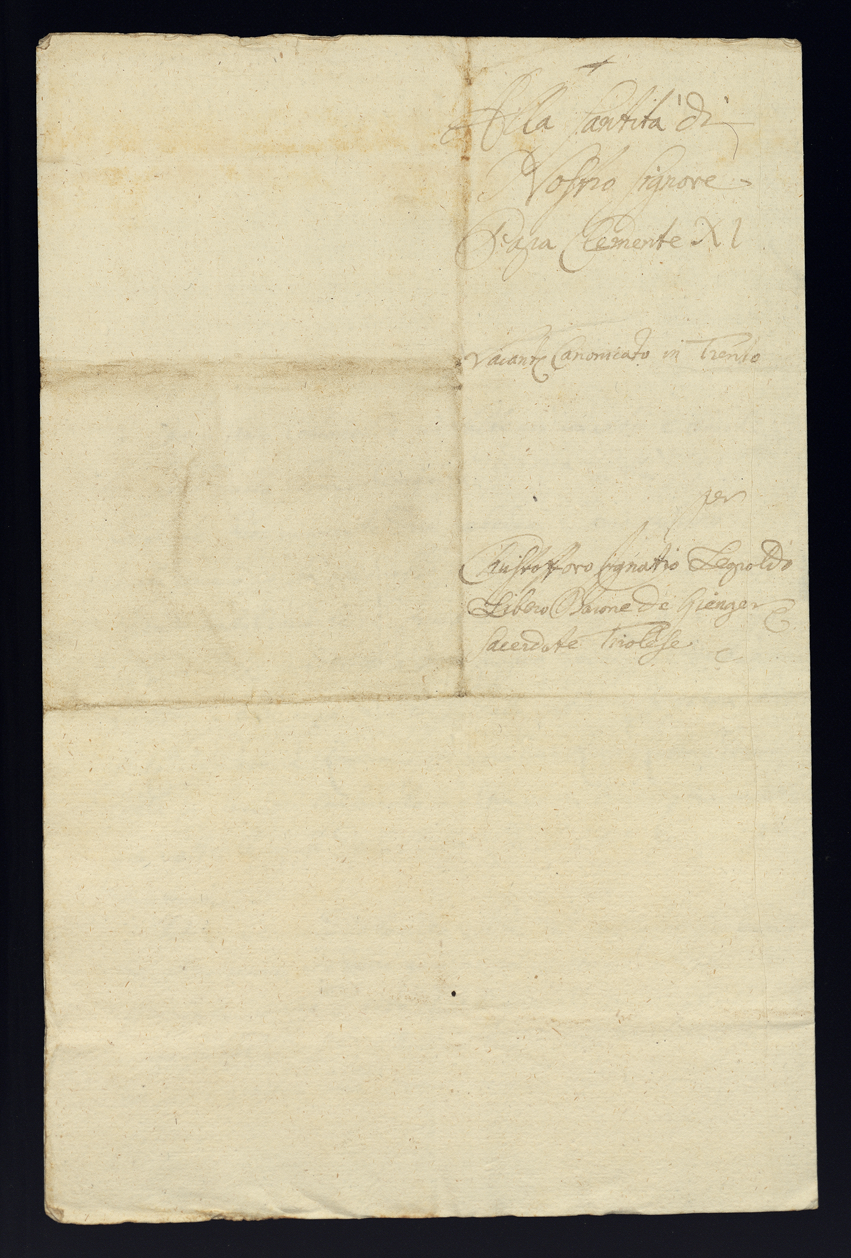 Alla Santità di
Nostro Signore
Papa Clemente XI
Vacante Canonicato in Trento
per
Christofforo Ignatio Leopoldo
Libero Barone de Gienger
Sacerdote Tirolese